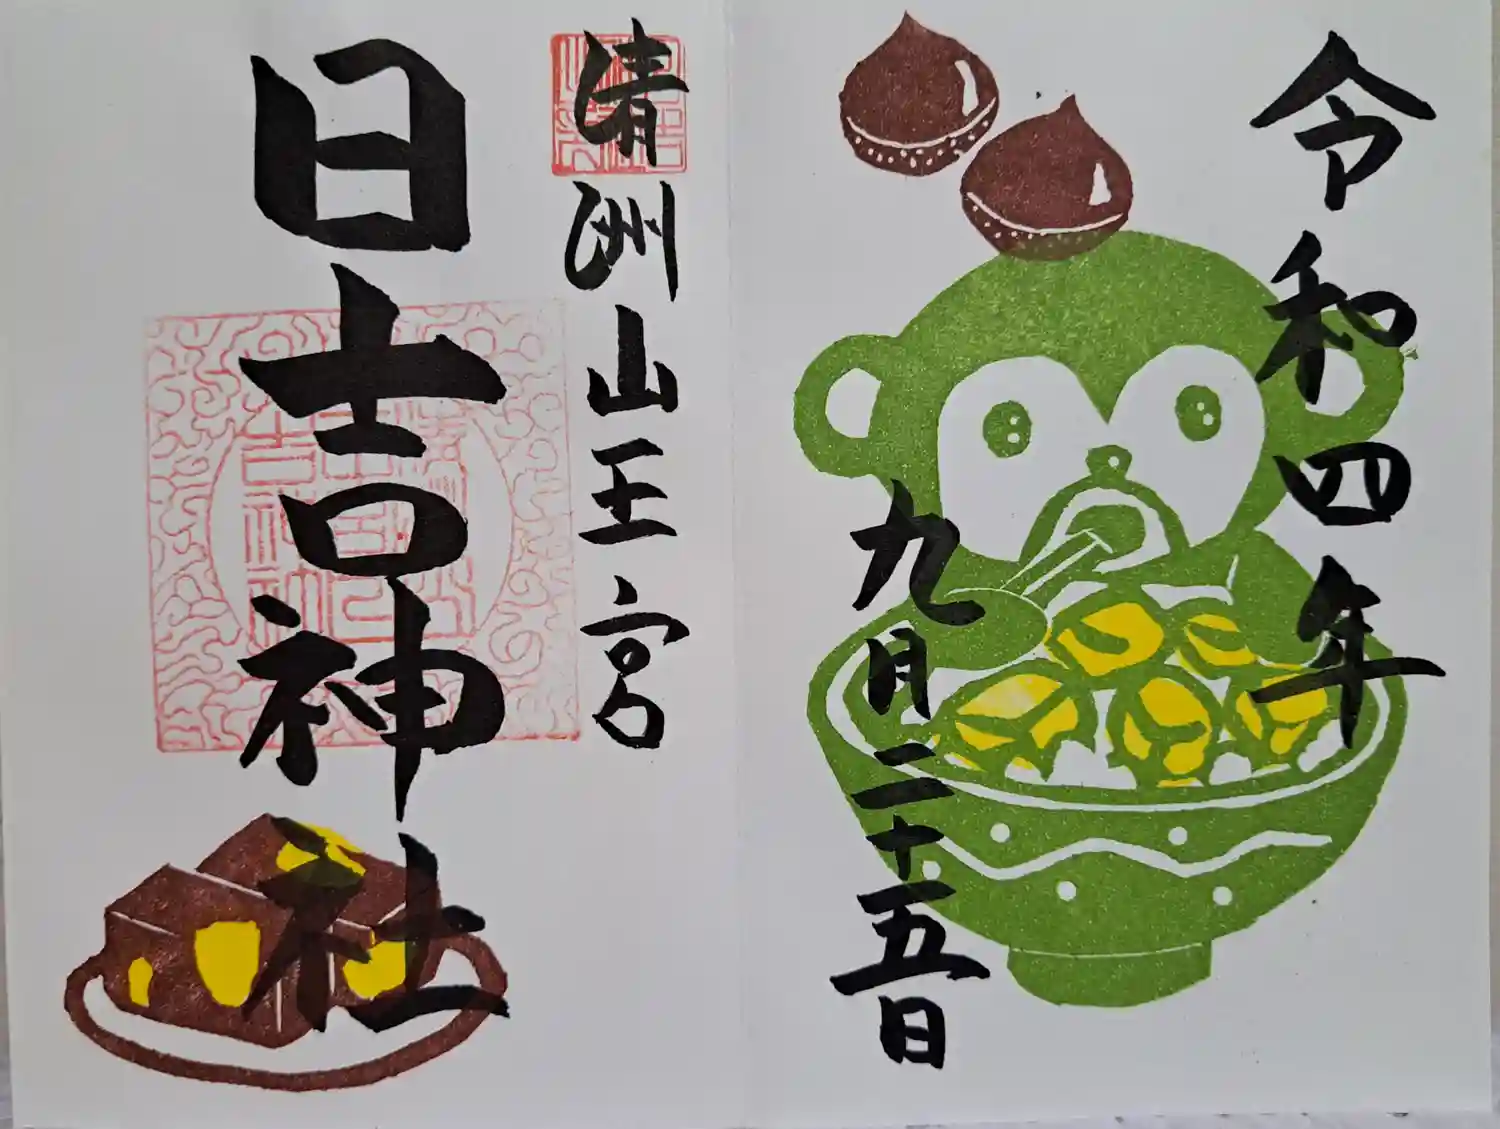 令和四年
九月二十五日
清洲山王宮
日吉神社